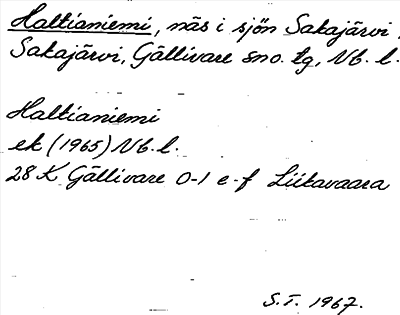 Haltianiemi, näs i sjön Sakajärvi,
Sakajärvi, Gällivare sno. tg, Nb. l.
Haltianiemi
ek (1965) Nb. l.
28 K Gällivare 0-1 e-f Liikavaara
S.T. 1967.